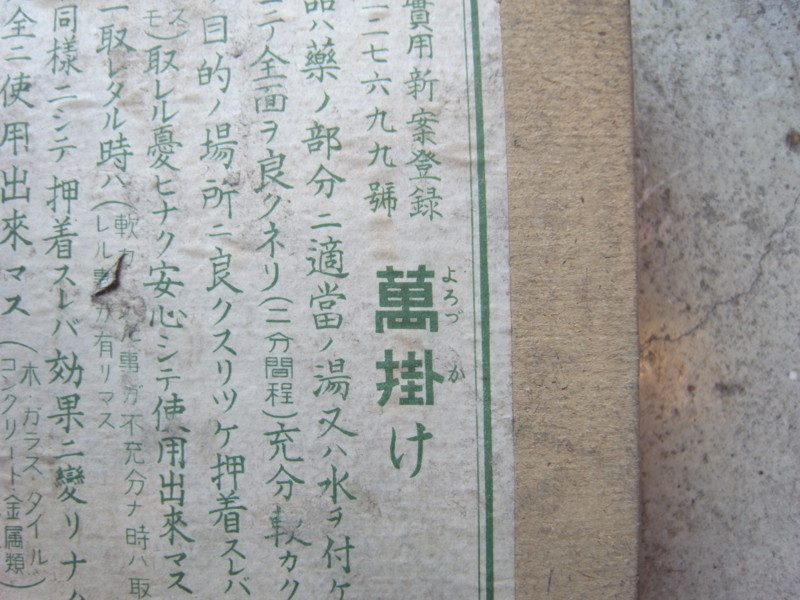 實用新案登録
一二七六九九號
萬掛け
よろづか
品ハ藥ノ部分ニ適當ノ湯又ハ水ヲ付ケ
ニテ全面ヲ良クネリ(二分間程)充分軟カク
目的ノ場所ニ良クスリツケ押着スレバ
モ)取レル憂ヒナク安心シテ使用出來マス
取レタル時ハ(軟カ
ル事ガ不充分ナ時ハ取
レル事ガ有リマス
同様ニシテ押着スレバ効果ニ變リナク
全ニ使用出來マス(木ガラス・タイル
コンクリート金属類)